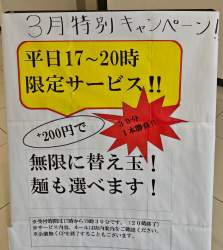 3月特別キャンペーン!
平日17〜20時
限定サービス!!
+200円で
30分
1本勝負!!
無限に替え玉!
麺も選べます!